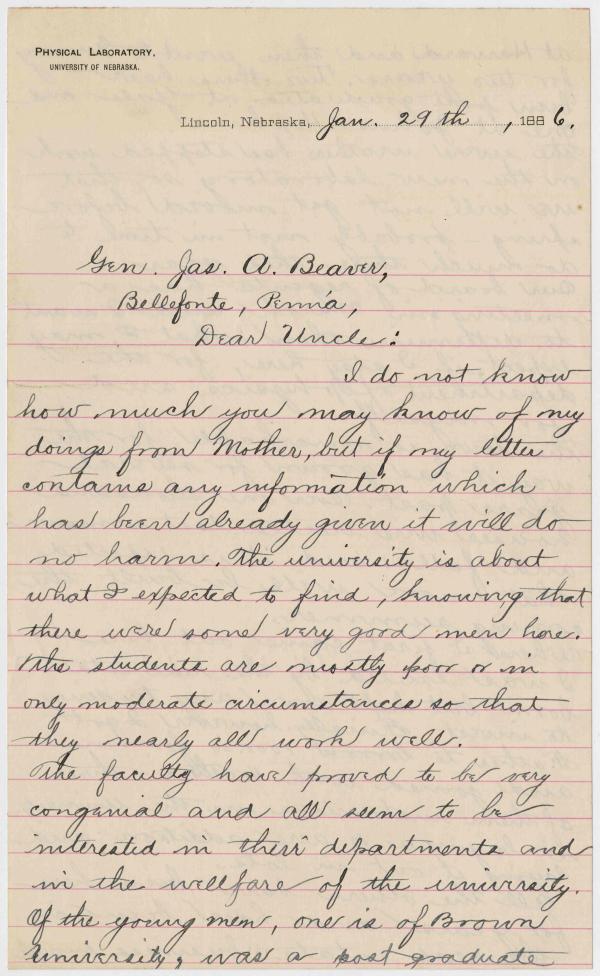 PHYSICAL LABORATORY.
UNIVERSITY OF NEBRASKA.
Lincoln, Nebraska, Jan. 29th, 1886.
Gen. Jas. A. Beaver,
Bellefonte, Penn'a,
Dear Uncle:
I do not know
how much you may know of my
doings from Mother, but if my letter
contains any information which
has been already given it will do
no harm. The university is about
what I expected to find, knowing that
there were some very good men here.
The students are mostly poor or in
only moderate circumstances so that
they nearly all work well.
The faculty have proved to be very
congenial and all seem to be
interested in their departments and
in the wellfare of the university.
Of the young men, one is of Brown
University, was a post graduate